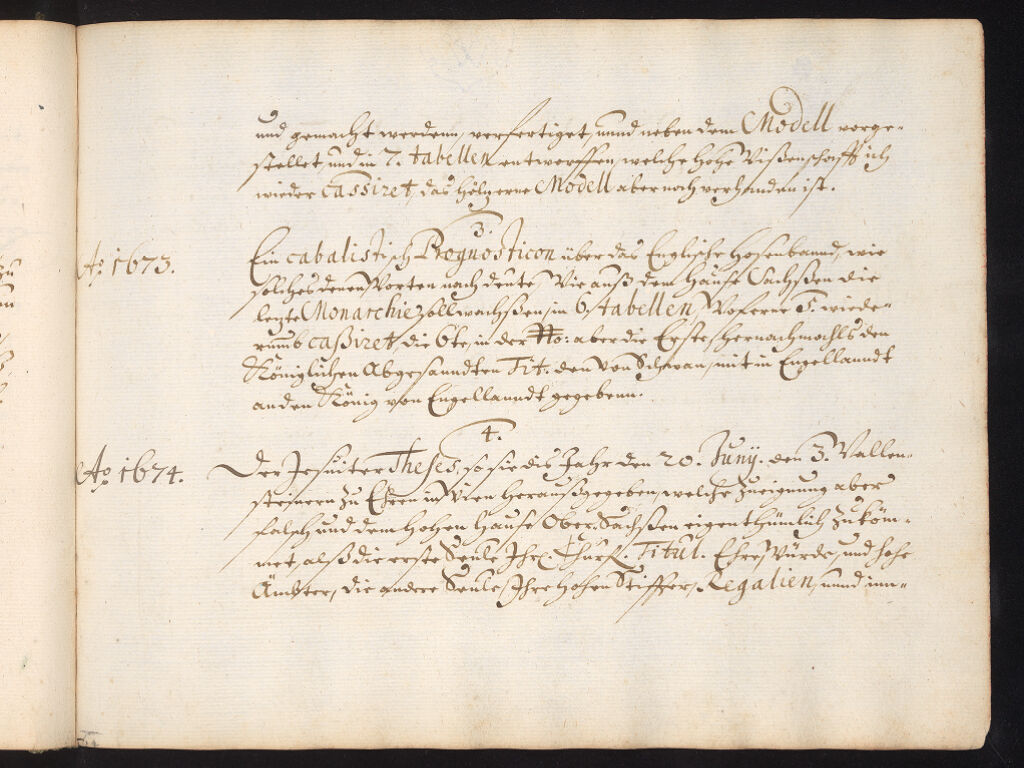 und gemacht werdenn, verfertiget, unnd neben dem Modell vorge-
stellet, und in 7. tabellen entworffen, welche hohe Wißenschafft ich
wieder cassiret, das höltzerne Modell aber noch verhanden ist.
3.
Ao. 1673.
Ein cabalistisch Prognosticon über das Englische Hosenbannd, wie
solches denen Worten nach deute, Wie auß dem Hause Sachßen die
letzte Monarchie soll wachßen, in 6. tabellen, Woferne 5. wiede-
rumb caßiret die 6te, in der No: aber die Erste hernachmahls den
Königlichen Abgesanndten Tit. den von Schwan, mit in Engellanndt
an den König von Engellanndt gegebenn.
4.
Ao. 1674.
Der Jesuiter Theses, so sie dis Jahr den 20. Juny. den 3. Wallen-
steinern zu Ehren in Wien herauß gegeben, welche Zueignung aber
falsch und dem Hohen Hause Ober Sachßen eigenthümlich zu köm-
met, alß die erste Seule Ihr Churf. Titul. Ehre Würde, und hohe
Ämbter, die andere Seule, Ihre hohen Stiffter, Regalien, unnd im-